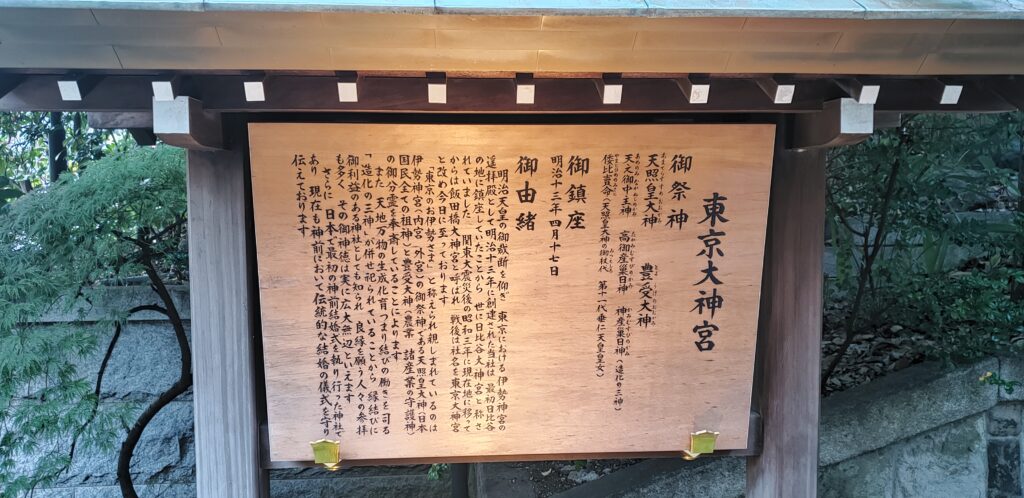 東京大神宮
御祭神
天照皇大神　豊受大神
天之御中主神　高御産巣日神　神産巣日神（造化の三神）
倭比賣命（天照皇大神の御杖代　第十一代垂仁天皇皇女）
御鎮座
明治十三年四月十七日
御由緒
明治天皇の御裁断を仰ぎ東京における伊勢神宮の
遥拝殿として明治十三年に創建された当社は　最初日比谷
の地に鎮座していたことから　世に日比谷大神宮と称さ
れていました　関東大震災後の昭和三年に現在地に移って
からは飯田橋大神宮と呼ばれ　戦後は社名を東京大神宮
と改め今日に至っております
「東京のお伊勢さま」と称えられ親しまれているのは
伊勢神宮（内宮・外宮）の御祭神である天照皇大神（日本
国民全ての総氏神）と豊受大神（農業　諸産業の守護神）
の御分霊を奉斎していることによります
また　天地万物の生成化育つまり結びの働きを司る
「造化の三神」が併せ祀られていることから　縁結びに
御利益のある神社としても知られ　良縁を願う人々の参拝
も多く　その御神徳は実に広大無辺といえます
さらに　日本で最初の神前結婚式を執り行った神社で
あり　現在も神前において伝統的な結婚の儀式を守り
伝えております